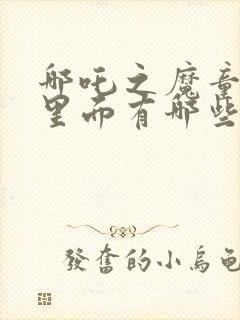 哪吒之魔童
里面有哪些
發奮的小烏龜